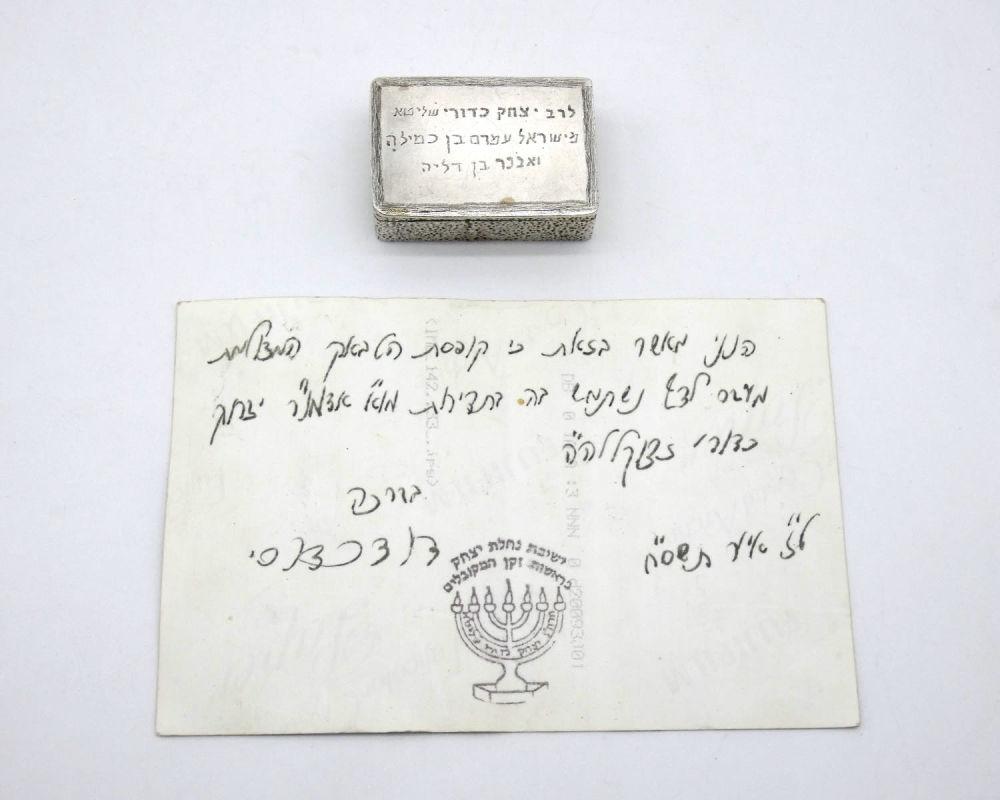 לרב יצחק כדורי שליטא
מישראל עמרם בן כמילה
ואבנר בן דליה
הנני מאשר בזאת כי קופסת הטבאק המצולמת
מעבר לדף נשתמש בה בתדירות מו"א אדמו"ר יצחק
כדורי זצוקללה"ה
בברכה
ט"ז אייר תשס"ח
ישיבת נחלת יצחק
בראשות זקן המקובלים